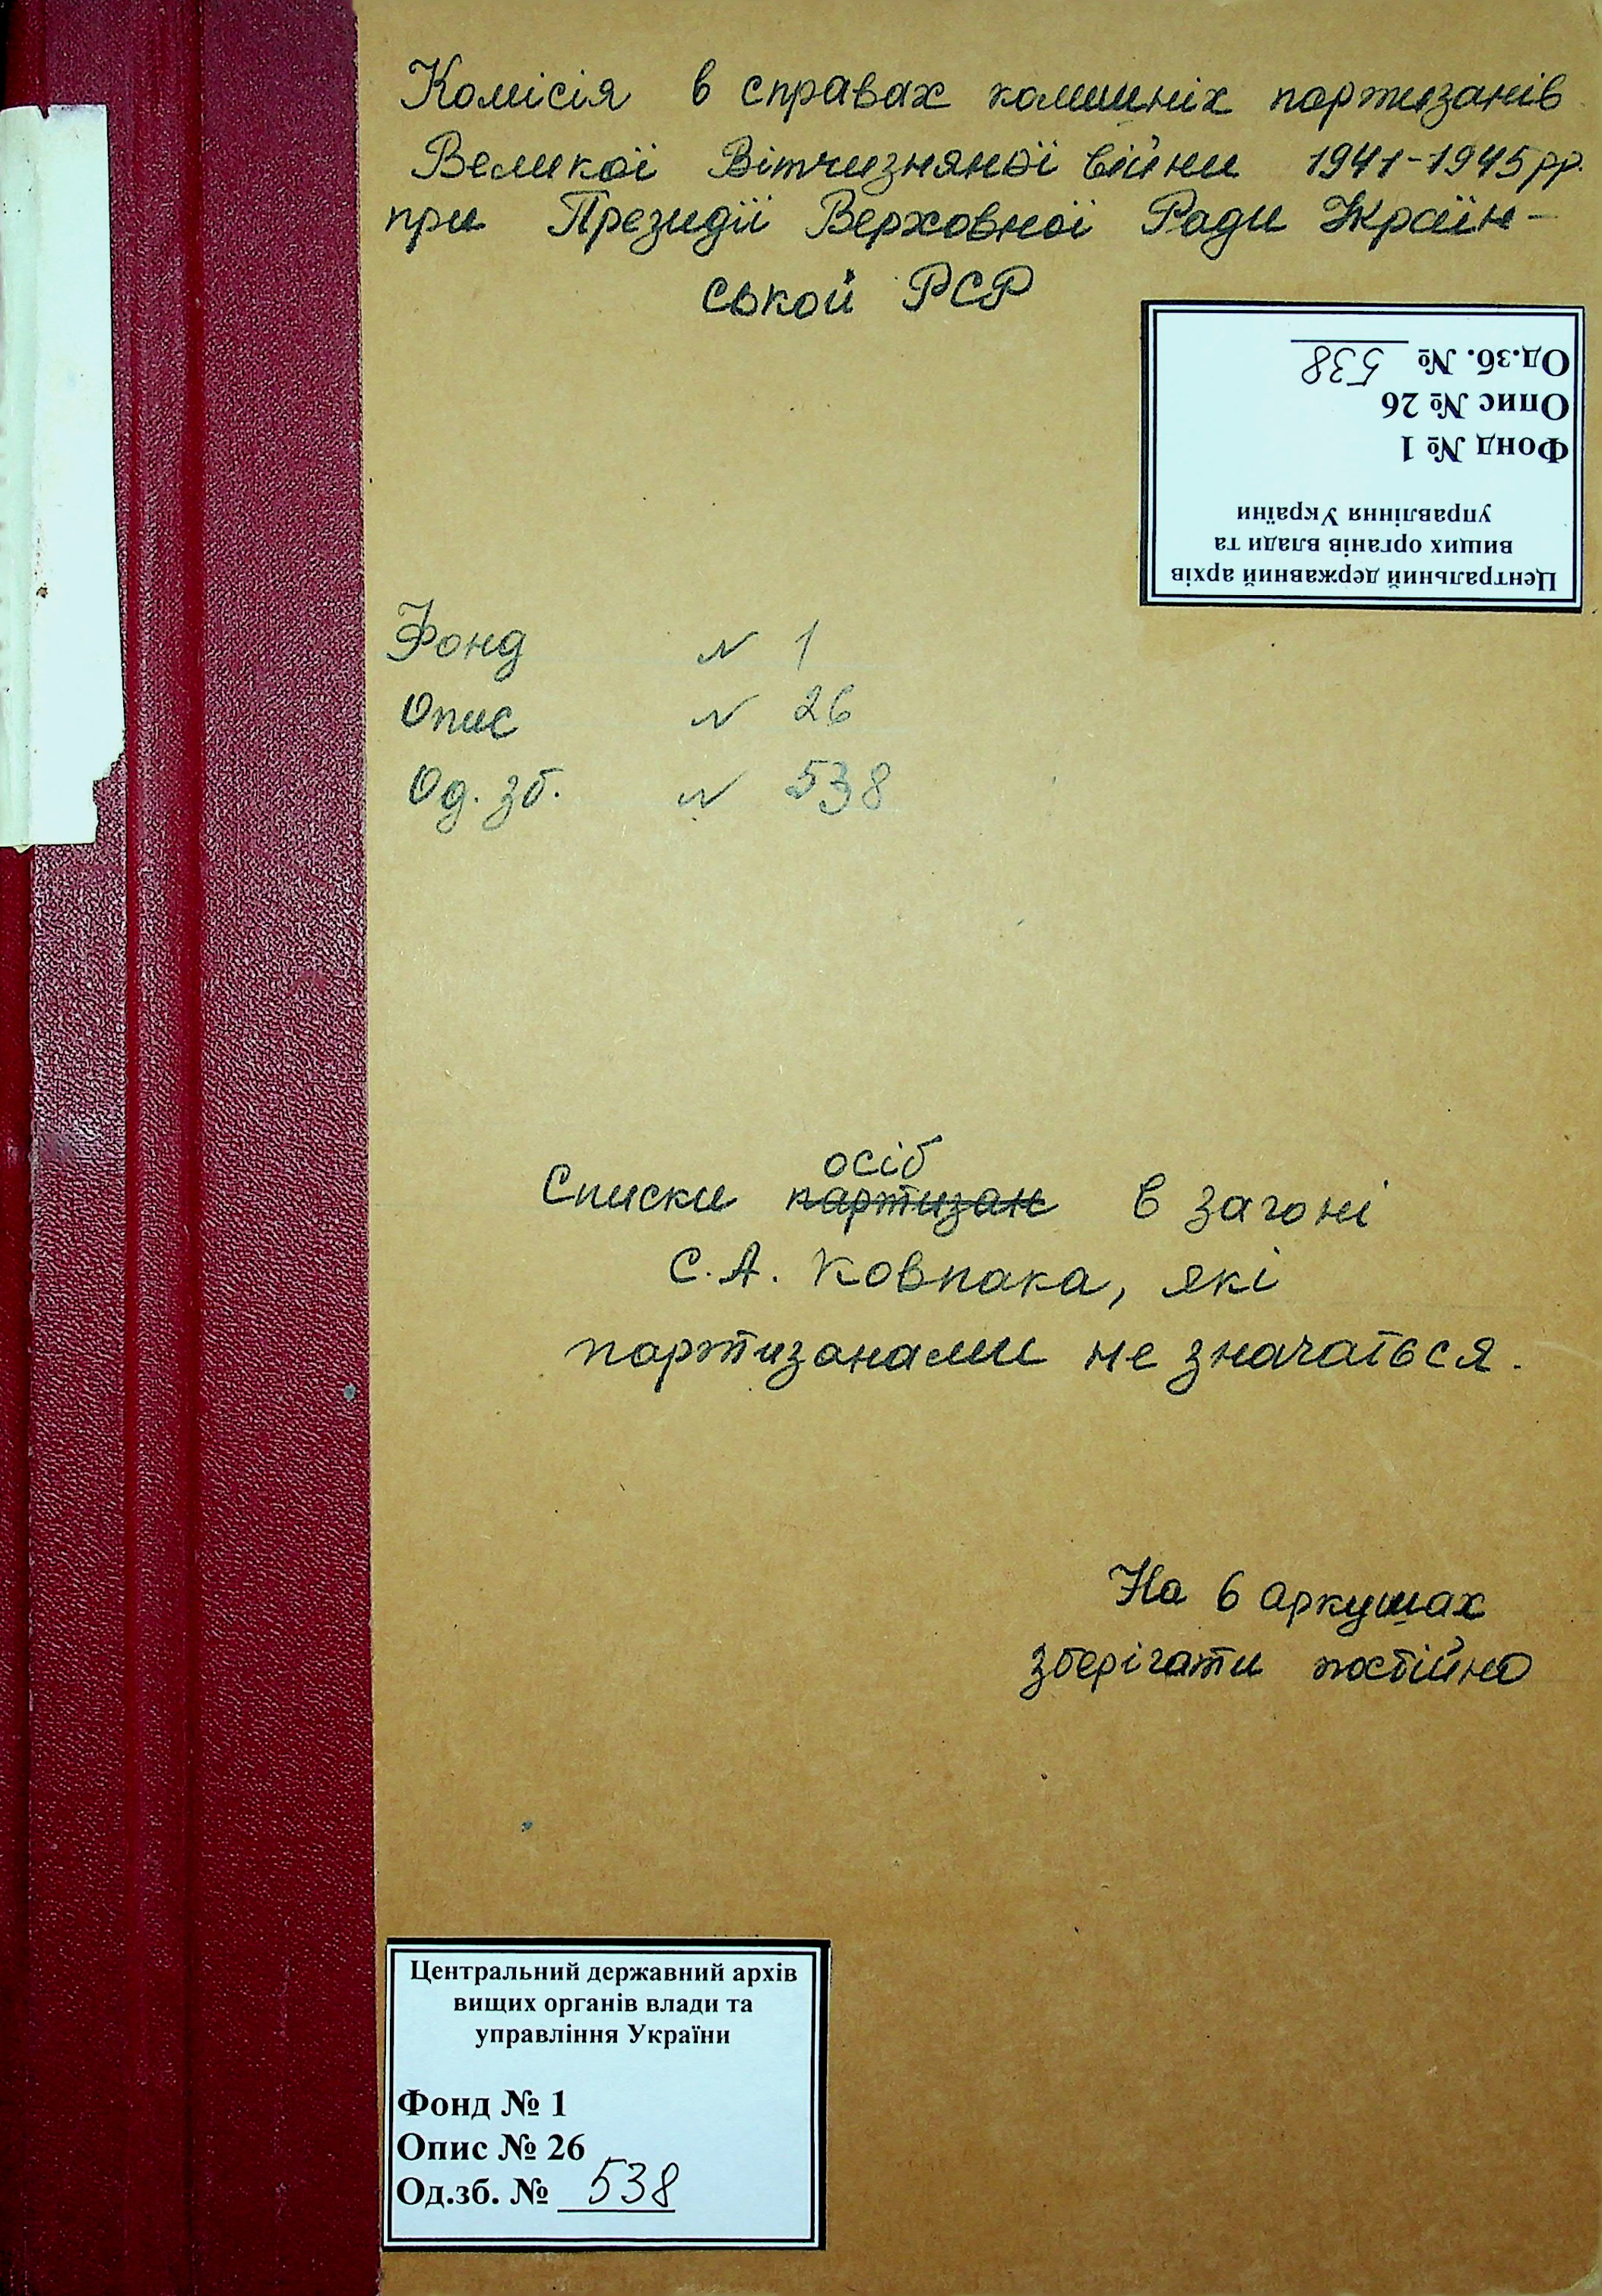 Комісія в справах колишніх партизанів
Великої Вітчизняної війни 1941-1945 рр.
при Президії Верховної Ради Україн-
ської РСР
Центральний державний архів
вищих органів влади та
управління України
Фонд № 1
Опис № 26
Од.зб. № 538
Фонд № 1
Опис № 26
Од. зб. № 538
осіб
Списки партизан в загоні
С.А. Ковпака, які
партизанами не значаться.
На 6 аркушах
зберігати постійно
Центральний державний архів
вищих органів влади та
управління України
Фонд № 1
Опис № 26
Од.зб. № 538